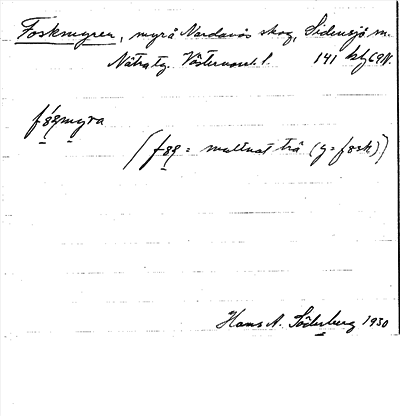 Foskmyren, myr å Nordanås skog, Sidensjö sn.
Nätra tg. Västernorrl. l. 141 kbl 69 N.
fǫsmyra
(fǫs = multnat trä (y = fosk))
Hans A. Söderberg 1930